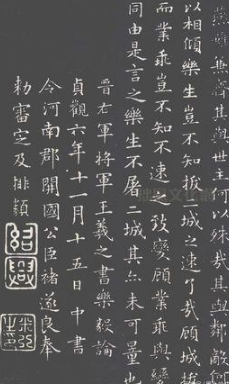 燕齊無爭其與世主何以殊哉其與鄰敵何
以相傾樂生豈不知拔城之速了哉顧城拔
而業乖豈不知不速之致變顧業乖與變
同由是言之樂生不屠二城其亦未可量也
晉右軍將軍王羲之書樂毅論
貞觀六年十一月十五日中書
令河南郡開國公臣褚遂良奉
勅審定及排類
紹興